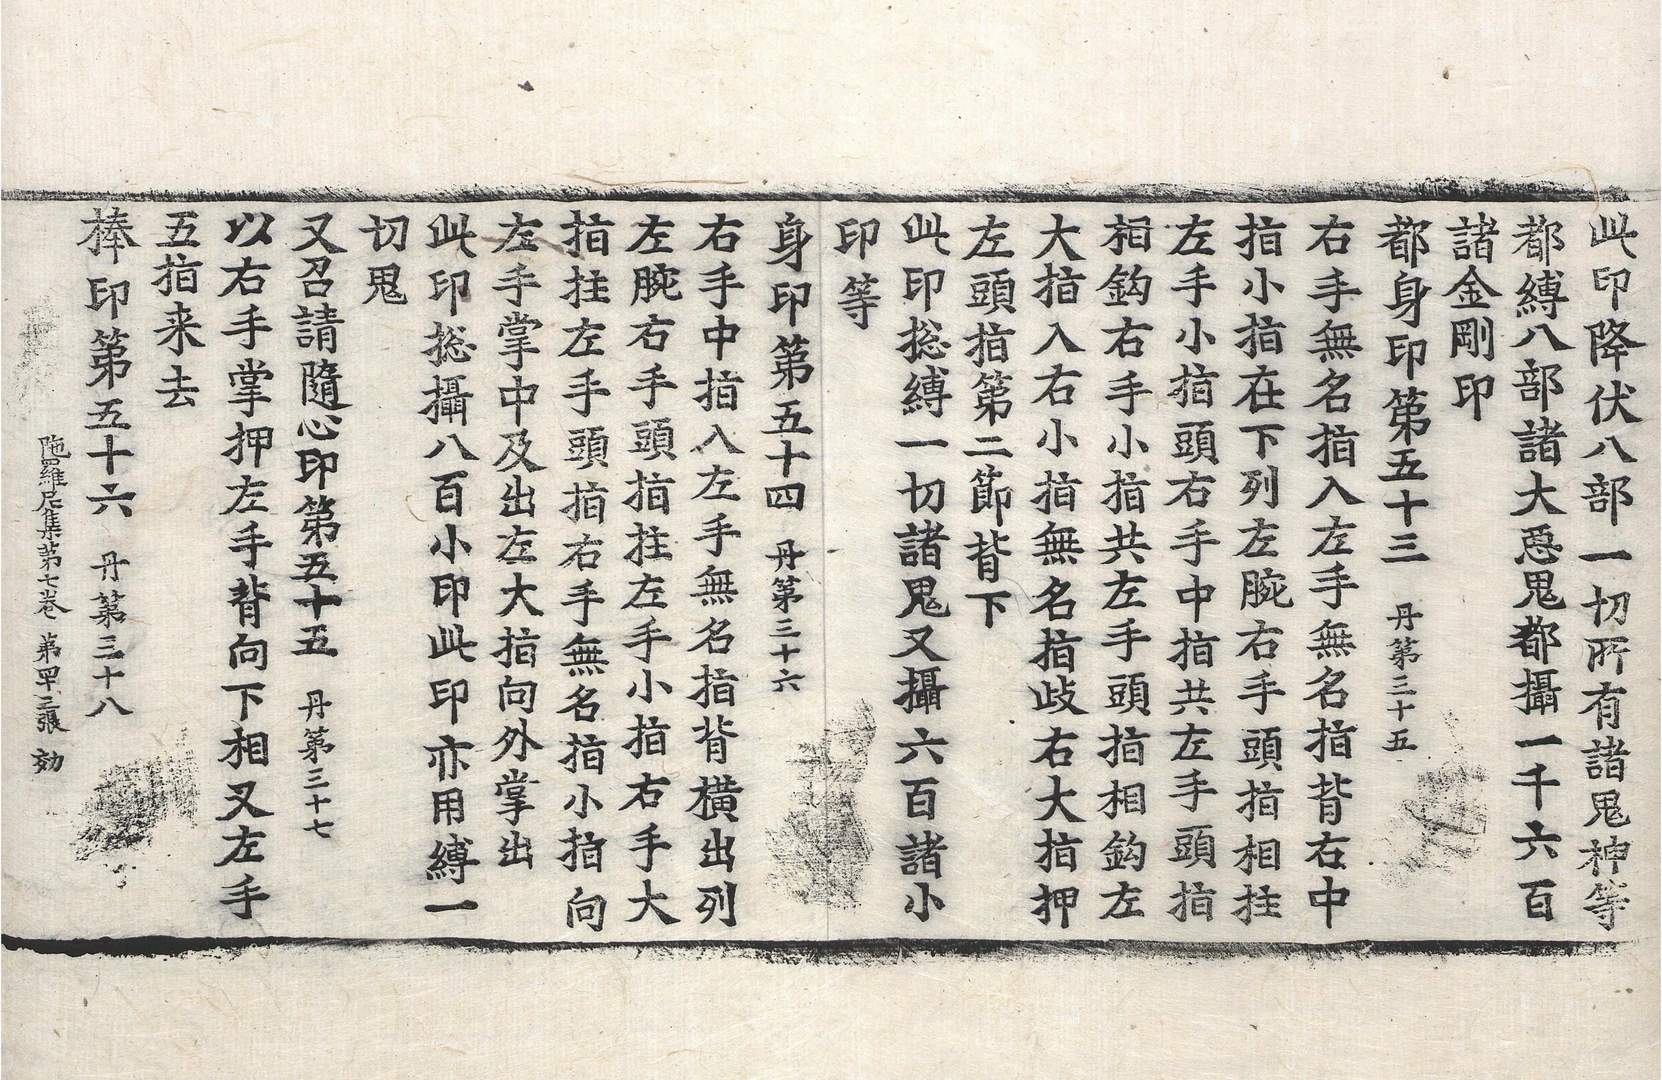 此印降伏八部一切所有諸鬼神等
都縛八部諸大惡鬼都攝一千六百
諸金剛印
都身印第五十三 丹第三十五
右手無名指入左手無名指背右中
指小指在下列左腕右手頭指相拄
左手小指頭右手中指共左手頭指
相鈎右手小指共左手頭指相鈎左
大指入右小指無名指歧右大指押
左頭指第二節背下
此印揔縛一切諸鬼又攝六百諸小
印等
身印第五十四 丹第三十六
右手中指入左手無名指背橫出列
左腕右手頭指拄左手小指右手大
指拄左手頭指右手無名指小指向
左手掌中及出左大指向外掌出
此印揔攝八百小印此印亦用縛一
切鬼
又召請隨心印第五十五 丹第三十七
以右手掌押左手背向下相叉左手
五指来去
棒印第五十六 丹第三十八
陁羅尼集第七卷 第罒三張 効